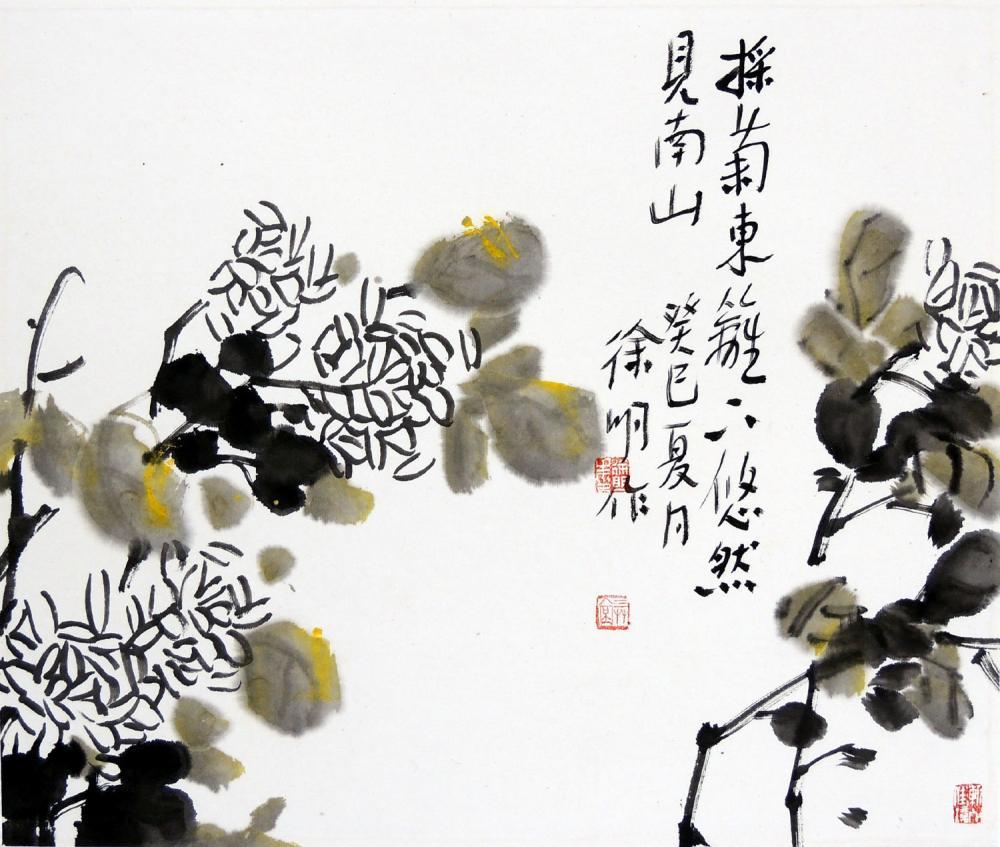 採菊東籬下悠然
見南山 癸巳夏月
徐明作